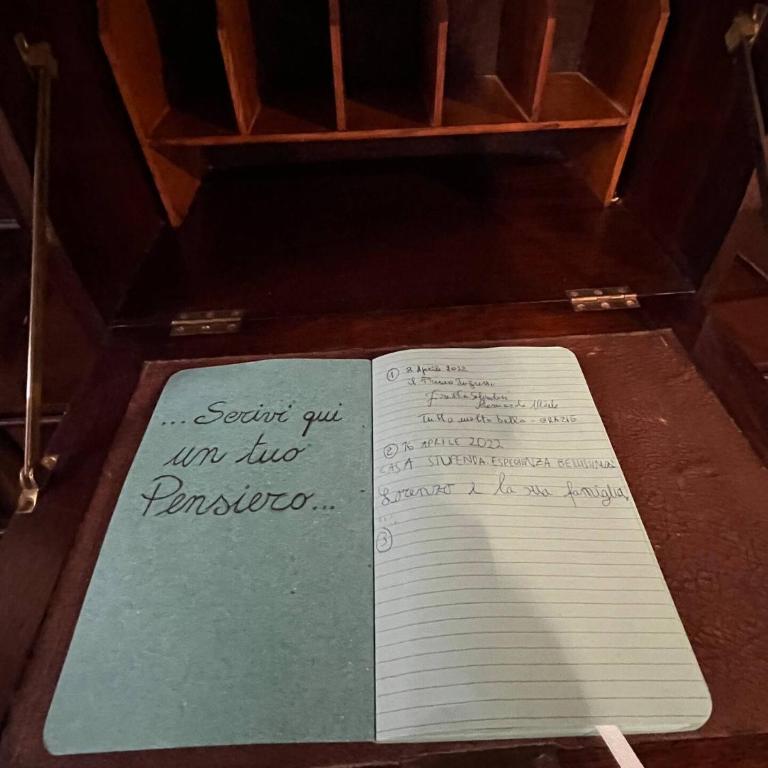 ... Scrivi qui
un tuo
Pensiero...
① 8 Aprile 2022
il Primo
Tutto molto bello - GRAZIE
② 16 APRILE 2022
CASA STUPENDA. ESPERIENZA BELLISSIMA
Lorenzo e la sua famiglia
③